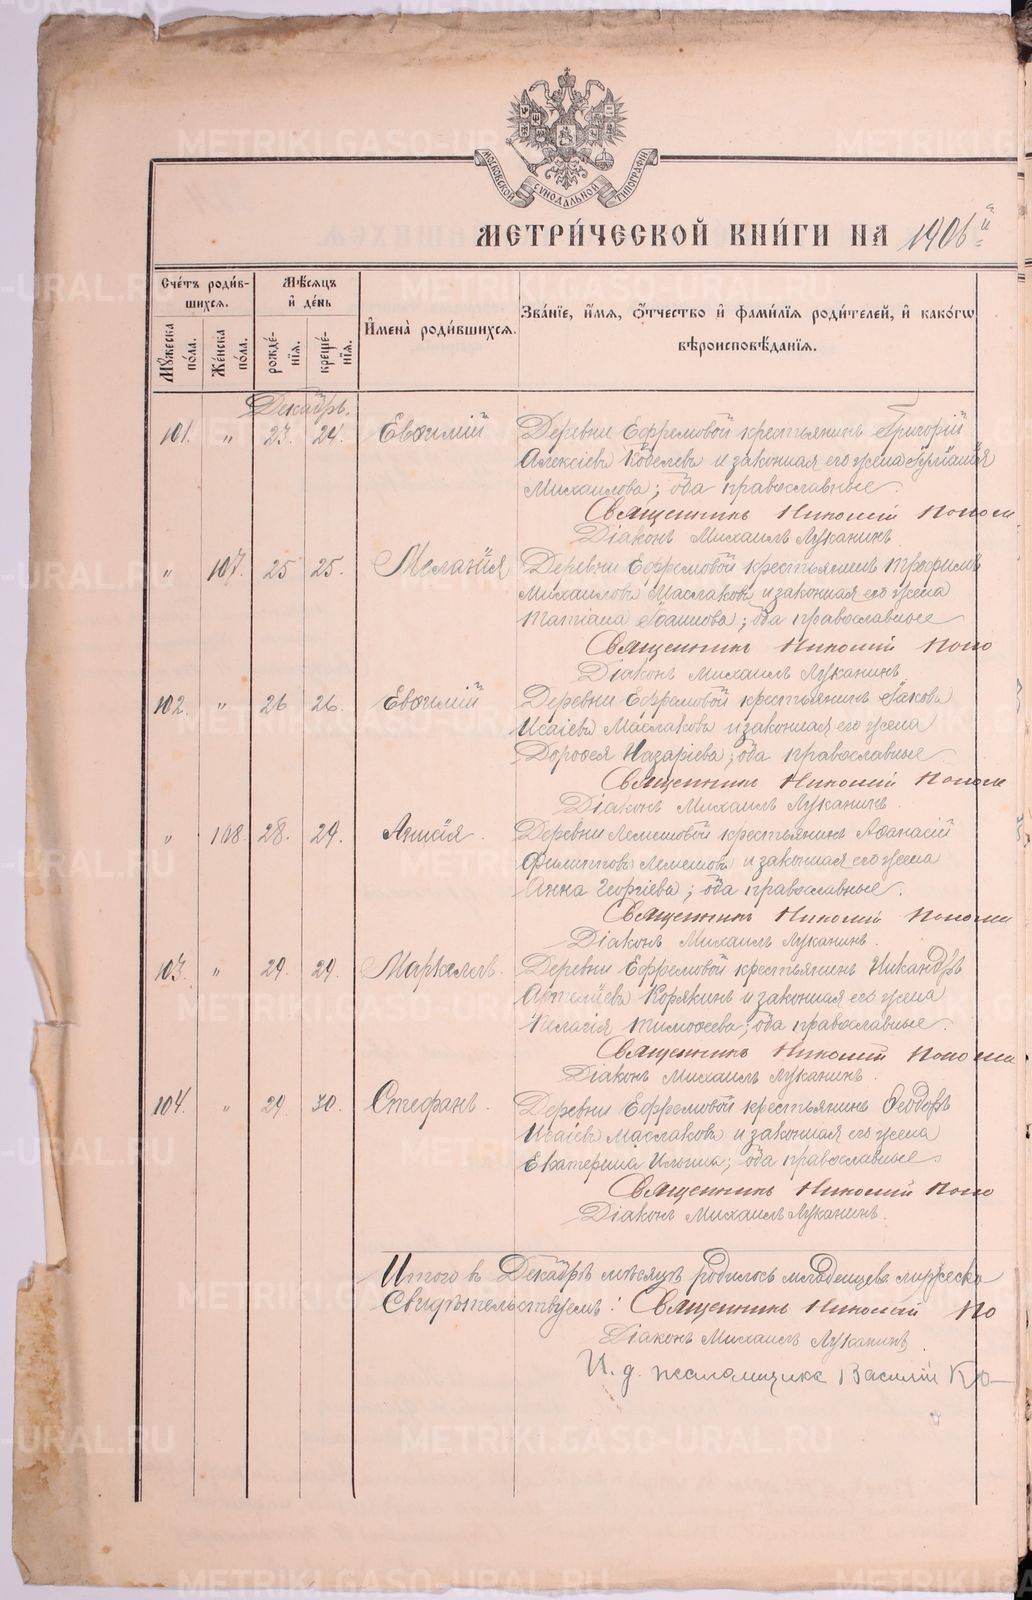 МОСКОВСКОЙ СѴНОДАЛЬНОЙ ТИПОГРАФІИ
МЕТРИ́ЧЕСКОЙ КНИ́ГИ НА 1906й
Сче́тъ роди́в-
шихсѧ.
Мѣсѧцъ
и҆ де́нь
И҆мена̀ роди́вшихсѧ.
Зва́нїе, и҆́мѧ, ѻ҆́тчество и҆ фами́лїѧ роди́телей, и҆ како́гѡ
вѣроисповѣ́данїѧ.
Мꙋ́жеска
по́ла.
Же́нска
по́ла.
рожде́-
нїѧ.
креще́-
нїѧ.
Декабрь.
101. " 23. 24. Евѳимій Деревни Ефремовой крестьянинъ Григорій
Алексіевъ Кобелевъ и законная его жена Іуліанія
Михаилова; оба православные.
Священникъ Николай
Діаконъ Михаилъ Луканинъ
" 107. 25 25. Меланія Деревни Ефремовой крестьянинъ Трофимъ
Михаиловъ Маслаковъ и законная его жена
Татіана Іоаннова; оба православные
Священникъ Николай
Діаконъ Михаилъ Луканинъ
102. " 26 26. Евѳимій Деревни Ефремовой крестьянинъ Іаковъ
Исаіевъ Маслаковъ и законная его жена
Дороѳея Назаріева; оба православные
Священникъ Николай
Діаконъ Михаилъ Луканинъ.
" 108 28. 29. Анисія. Деревни Лемешовой крестьянинъ Аѳанасій
Филипповъ Лемешовъ и законная его жена
Анна Георгіева; оба православные.
Священникъ Николай
Діаконъ Михаилъ Луканинъ.
103. " 29. 29. Маркеллъ. Деревни Ефремовой крестьянинъ Никандръ
Корякинъ и законная его жена
Пелагія Тимоѳеева; оба православные.
Священникъ Николай
Діаконъ Михаилъ Луканинъ.
104. " 29 30. Стефанъ. Деревни Ефремовой крестьянинъ Ѳеодоръ
Исаіевъ Маслаковъ и законная его жена
Екатерина Ильина; оба православные
Священникъ Николай
Діаконъ Михаилъ Луканинъ.
Итого въ Декабрѣ мѣсяцѣ родилось младенцевъ мужеска
Свидѣтельствуемъ: Священникъ Николай По
Діаконъ Михаилъ Луканинъ.
И. д. псаломщика Василій Ко